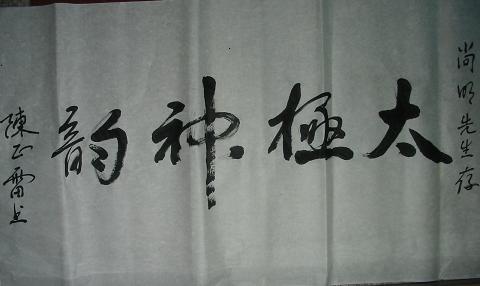 尚明先生存
太極神韵
陳正雷书